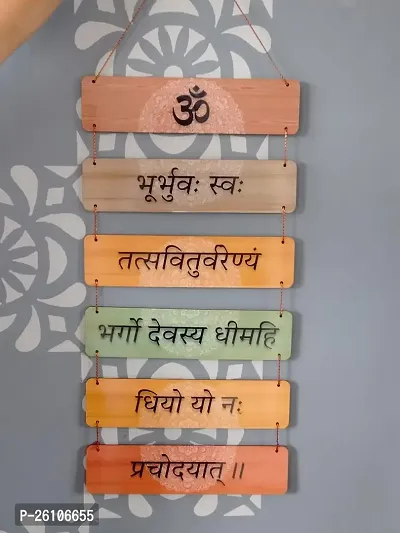 ॐ
भूर्भुवः स्वः
तत्सवितुर्वरेण्यं
भर्गो देवस्य धीमहि
धियो यो नः
प्रचोदयात्॥
P-26106655